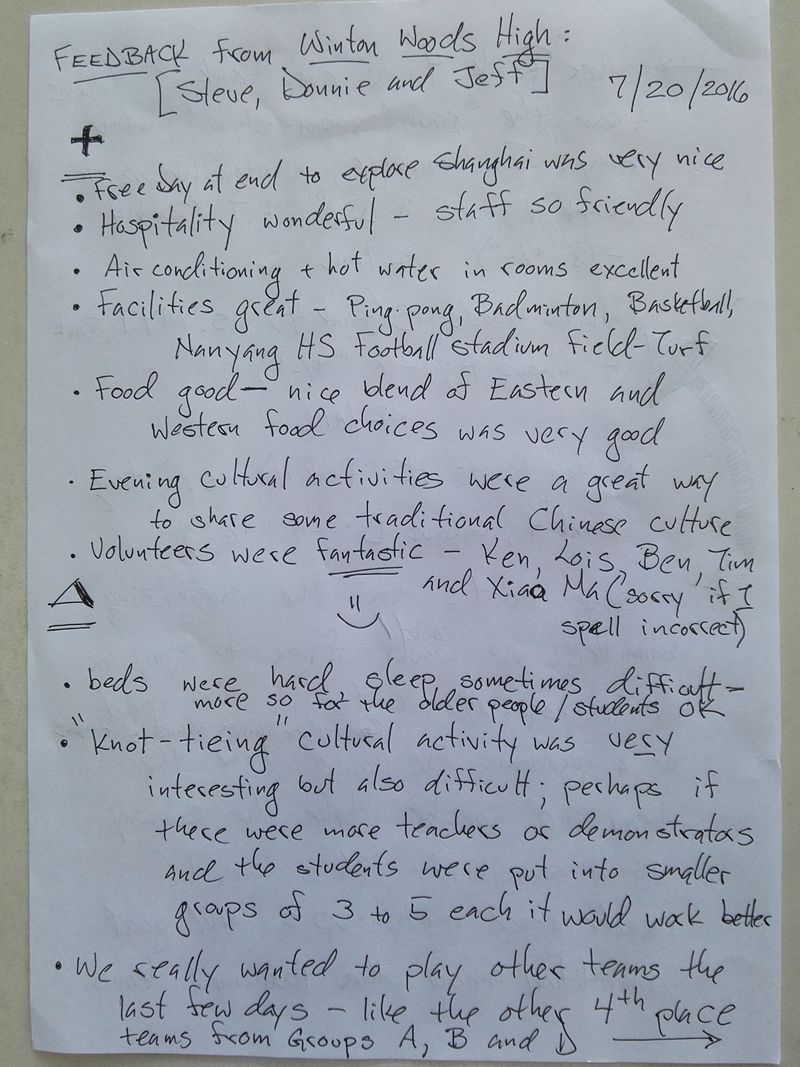 FEEDBACK from Winton Woods High:
[Steve, Donnie and Jeff] 7/20/2016
+
• Free Day at end to explore Shanghai was very nice
• Hospitality wonderful - staff so friendly
• Air conditioning + hot water in rooms excellent
• Facilities great - Ping-pong, Badminton, Basketball,
Nanyang HS Football stadium Field-Turf
• Food good - nice blend of Eastern and
Western food choices was very good
• Evening cultural activities were a great way
to share some traditional Chinese culture
• Volunteers were fantastic - Ken, Lois, Ben, Tim
and Xiao Ma (sorry if I
spell incorrect)
Δ
• beds were hard sleep sometimes difficult -
more so for the older people/students OK
• "Knot-tieing" cultural activity was very
interesting but also difficult; perhaps if
there were more teachers or demonstrators
and the students were put into smaller
groups of 3 to 5 each it would work better
• We really wanted to play other teams the
last few days - like the other 4th place
teams from Groups A, B and D →